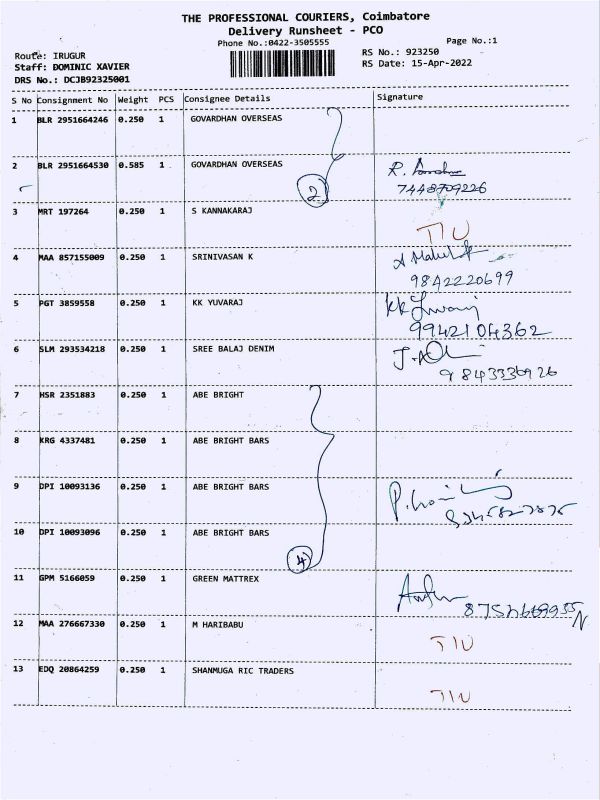 THE PROFESSIONAL COURIERS, Coimbatore
Delivery Runsheet - PCO
Phone No.:0422-3505555
Page No.:1
Route: IRUGUR
RS No.: 923250
Staff: DOMINIC XAVIER
RS Date: 15-Apr-2022
DRS No.: DCJB92325001
S No Consignment No Weight PCS Consignee Details Signature
1 BLR 2951664246 0.250 1 GOVARDHAN OVERSEAS
2 BLR 2951664530 0.585 1 GOVARDHAN OVERSEAS
2
7448709226
3 MRT 197264 0.250 1 S KANNAKARAJ
TIU
4 MAA 857155009 0.250 1 SRINIVASAN K
9842220699
5 PGT 3859558 0.250 1 KK YUVARAJ
9942104362
6 SLM 293534218 0.250 1 SREE BALAJ DENIM
9843336926
7 HSR 2351883 0.250 1 ABE BRIGHT
8 KRG 4337481 0.250 1 ABE BRIGHT BARS
9 DPI 10093136 0.250 1 ABE BRIGHT BARS
10 DPI 10093096 0.250 1 ABE BRIGHT BARS
4
11 GPM 5166059 0.250 1 GREEN MATTREX
12 MAA 276667330 0.250 1 M HARIBABU
TIU
13 EDQ 20864259 0.250 1 SHANMUGA RIC TRADERS
TIU